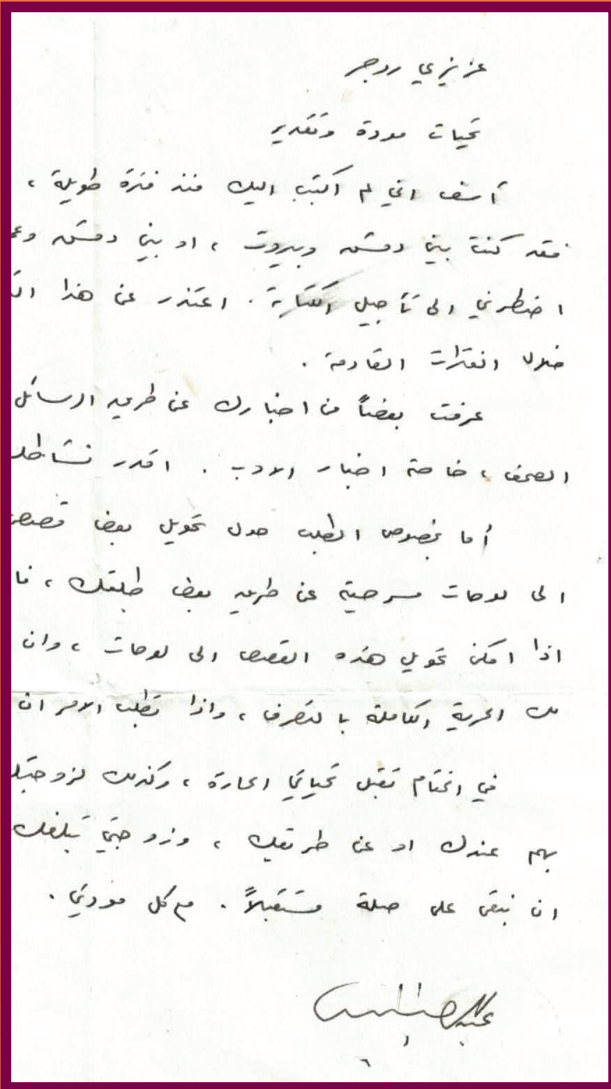 عزيزي روجر
تحيات مودة وتقدير
آسف اني لم اكتب اليك منذ فترة طويلة ،
فقد كنت بين دمشق وبيروت ، او بين دمشق وعم
اضطرني الى تأجيل الكتابة . اعتذر عن هذا الت
خلال الفترات القادمة .
عرفت بعضاً من اخبارك عن طريق الرسائل
الصحف ، خاصة اخبار الادب . اقدر نشاطك
أما بخصوص الطلب حول تحويل بعض قصص
الى لوحات مسرحية عن طريق بعض طلبتك ، فا
اذا امكن تحويل هذه القصص الى لوحات ، وان
لك الحرية الكاملة بالتصرف ، واذا تطلب الامر ان
في الختام تقبل تحياتي الحارة ، وكذلك لزوجتك
بهم عندك او عن طريقك ، وزوجتي تبلغك
ان نبقى على صلة مستقبلاً . مع كل مودتي .